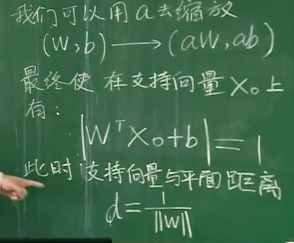 我们可以用a去缩放
(W,b)→(aW,ab)
最终使 在支持向量X₀上
有：
|WᵀX₀+b|=1
此时 支持向量与平面距离
d=1/‖W‖